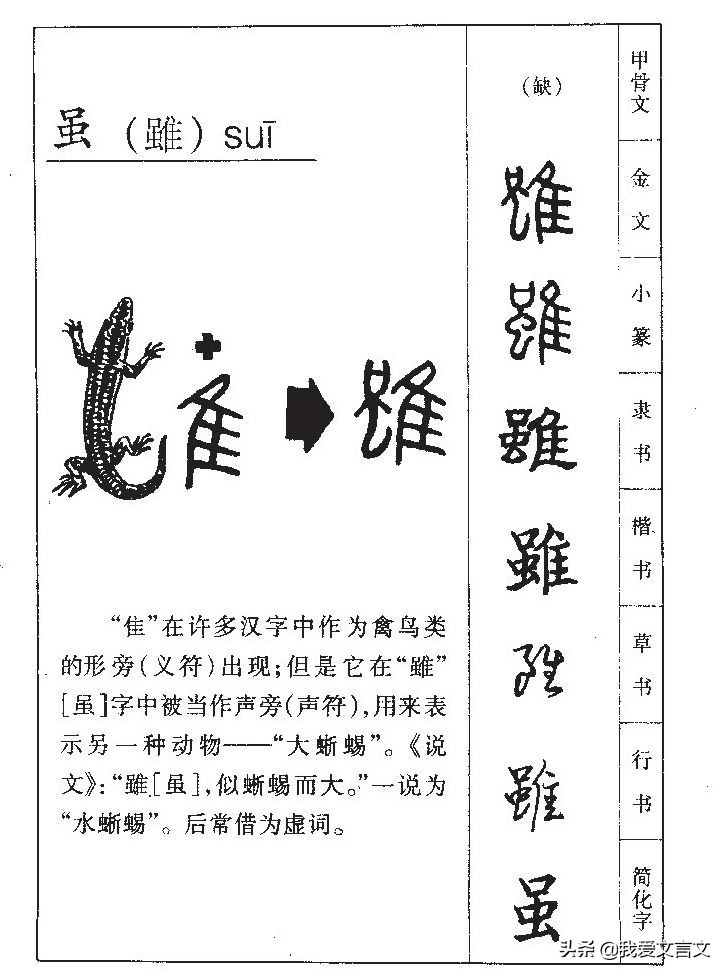 虽（雖）suī
“隹”在许多汉字中作为禽鸟类
的形旁(义符)出现;但是它在“雖”
[虽]字中被当作声旁(声符),用来表
示另一种动物——“大蜥蜴”。《说
文》:“雖[虽],似蜥蜴而大。”一说为
“水蜥蜴”。后常借为虚词。
隹
雖
（缺）
雖
雖
雖
雖
雖
雖
虽
甲骨文
金文
小篆
隶书
楷书
草书
行书
简化字
头条 @我爱文言文